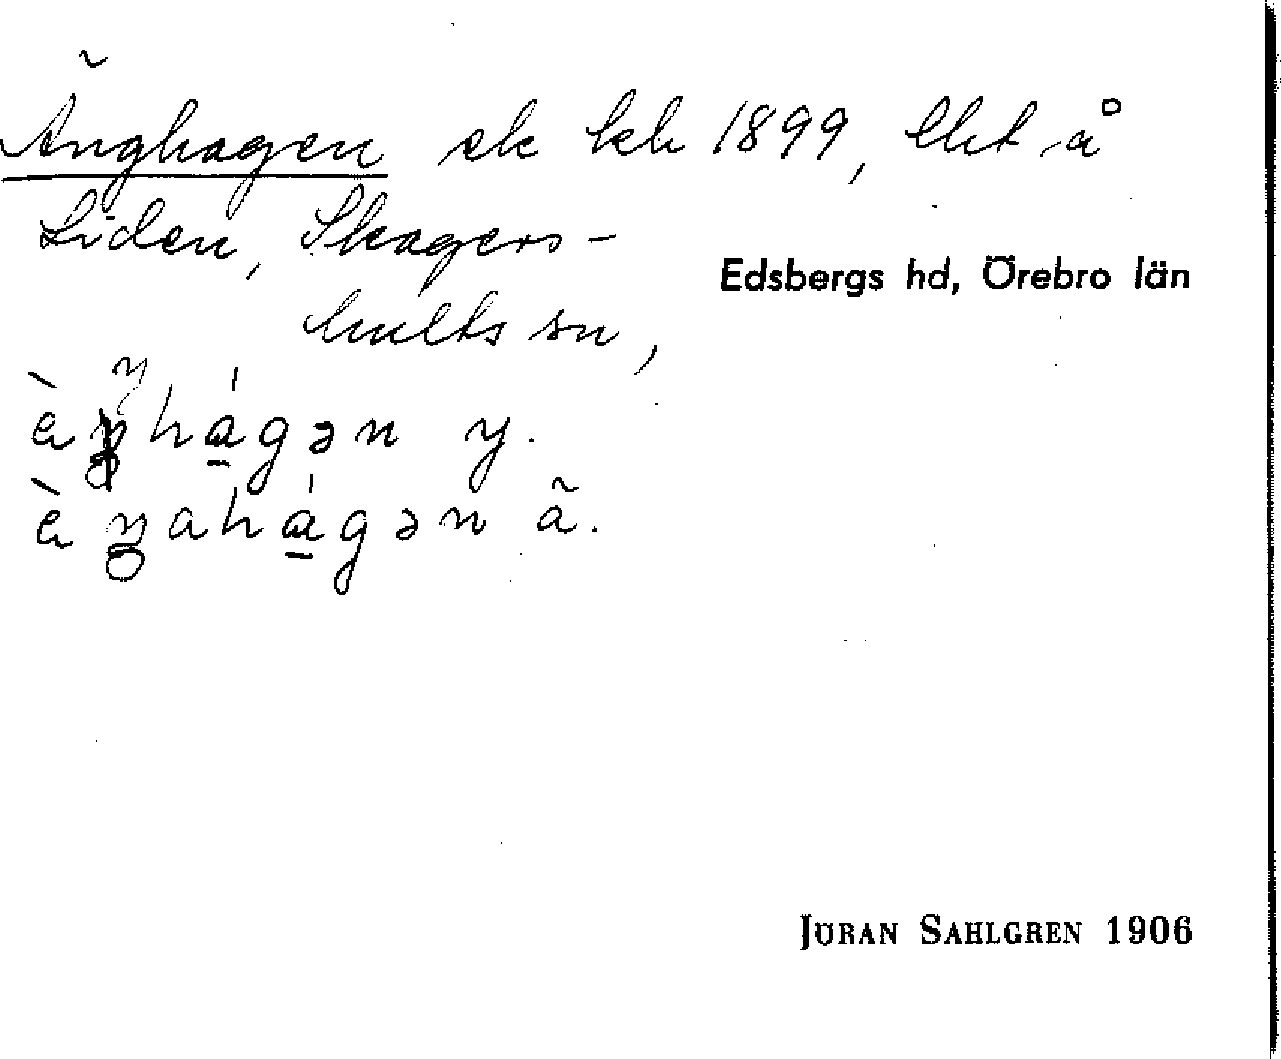 Änghagen ek kh 1899, lht å
Liden, Skagers-
hults sn,
Edsbergs hd, Örebro län
hágən y.
ahágən ã.
JÖRAN SAHLGREN 1906